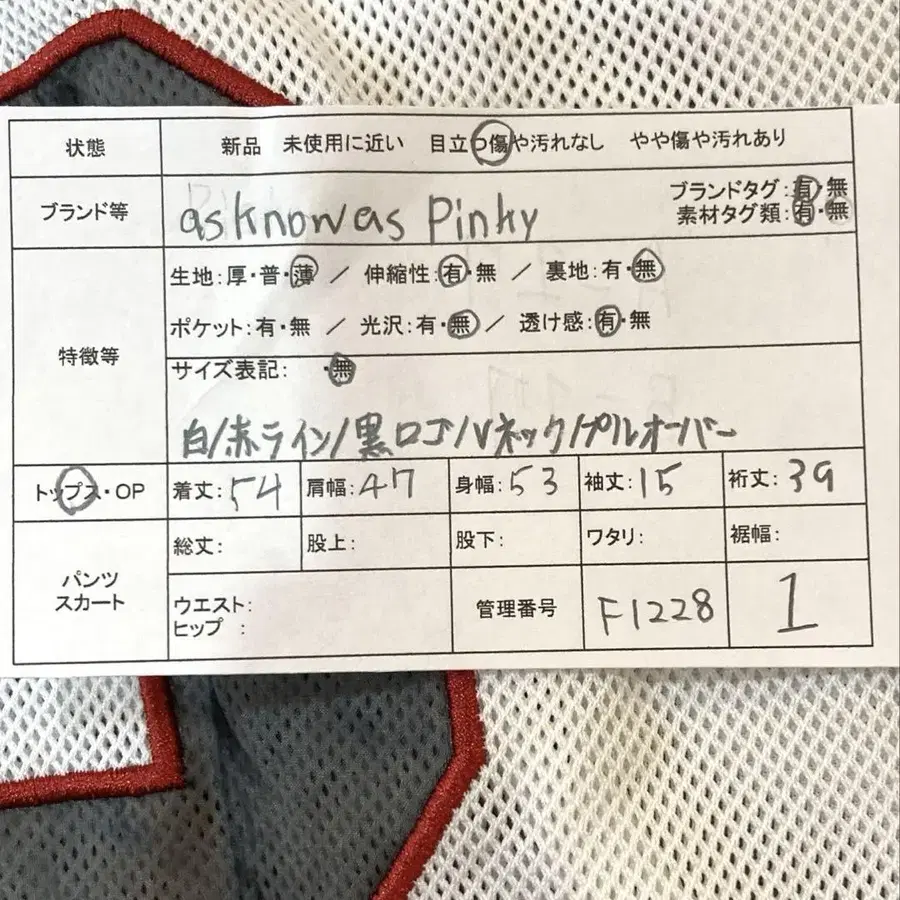 状態 新品 未使用に近い 目立つ傷や汚れなし やや傷や汚れあり
ブランド等 asknowas Pinky ブランドタグ:有・無
素材タグ類:有・無
特徴等 生地:厚・普・薄 / 伸縮性:有・無 / 裏地:有・無
ポケット:有・無 / 光沢:有・無 / 透け感:有・無
サイズ表記: ・無
白/赤ライン/黒ロゴ/Vネック/プルオーバー
トップス・OP 着丈:54 肩幅:47 身幅:53 袖丈:15 裄丈:39
パンツ
スカート 総丈: 股上: 股下: ワタリ: 裾幅:
ウエスト:
ヒップ : 管理番号 F1228 1